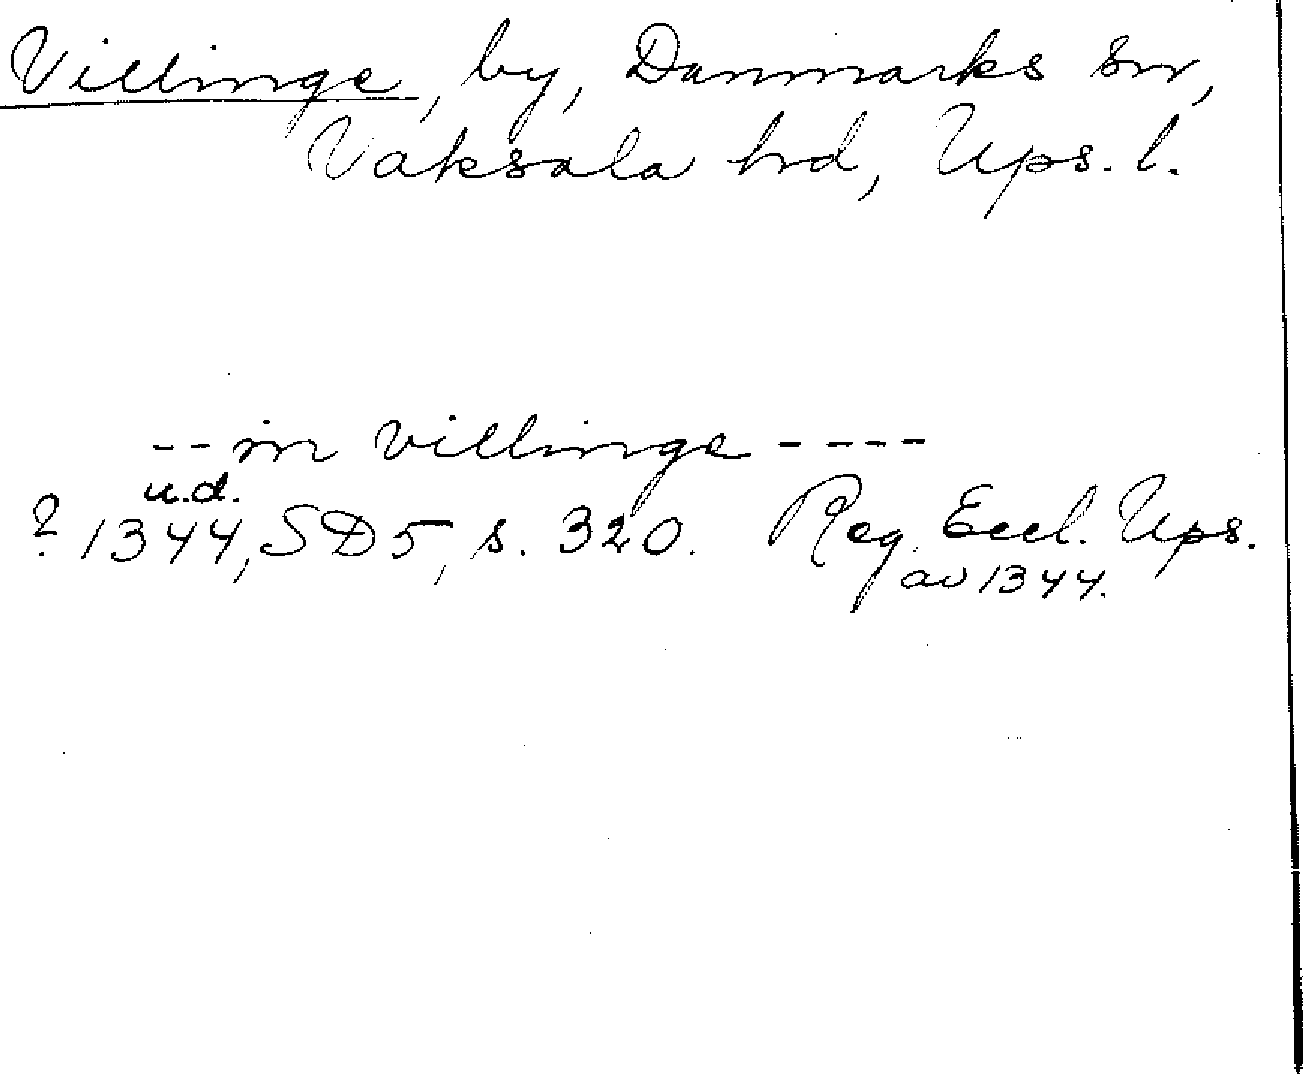 Villinge, by, Danmarks sn,
Vaksala hd, Ups. l.
-- in villinge ----
u.d.
? 1344, SD 5, s. 320. Reg. Eccl. Ups.
av 1344.